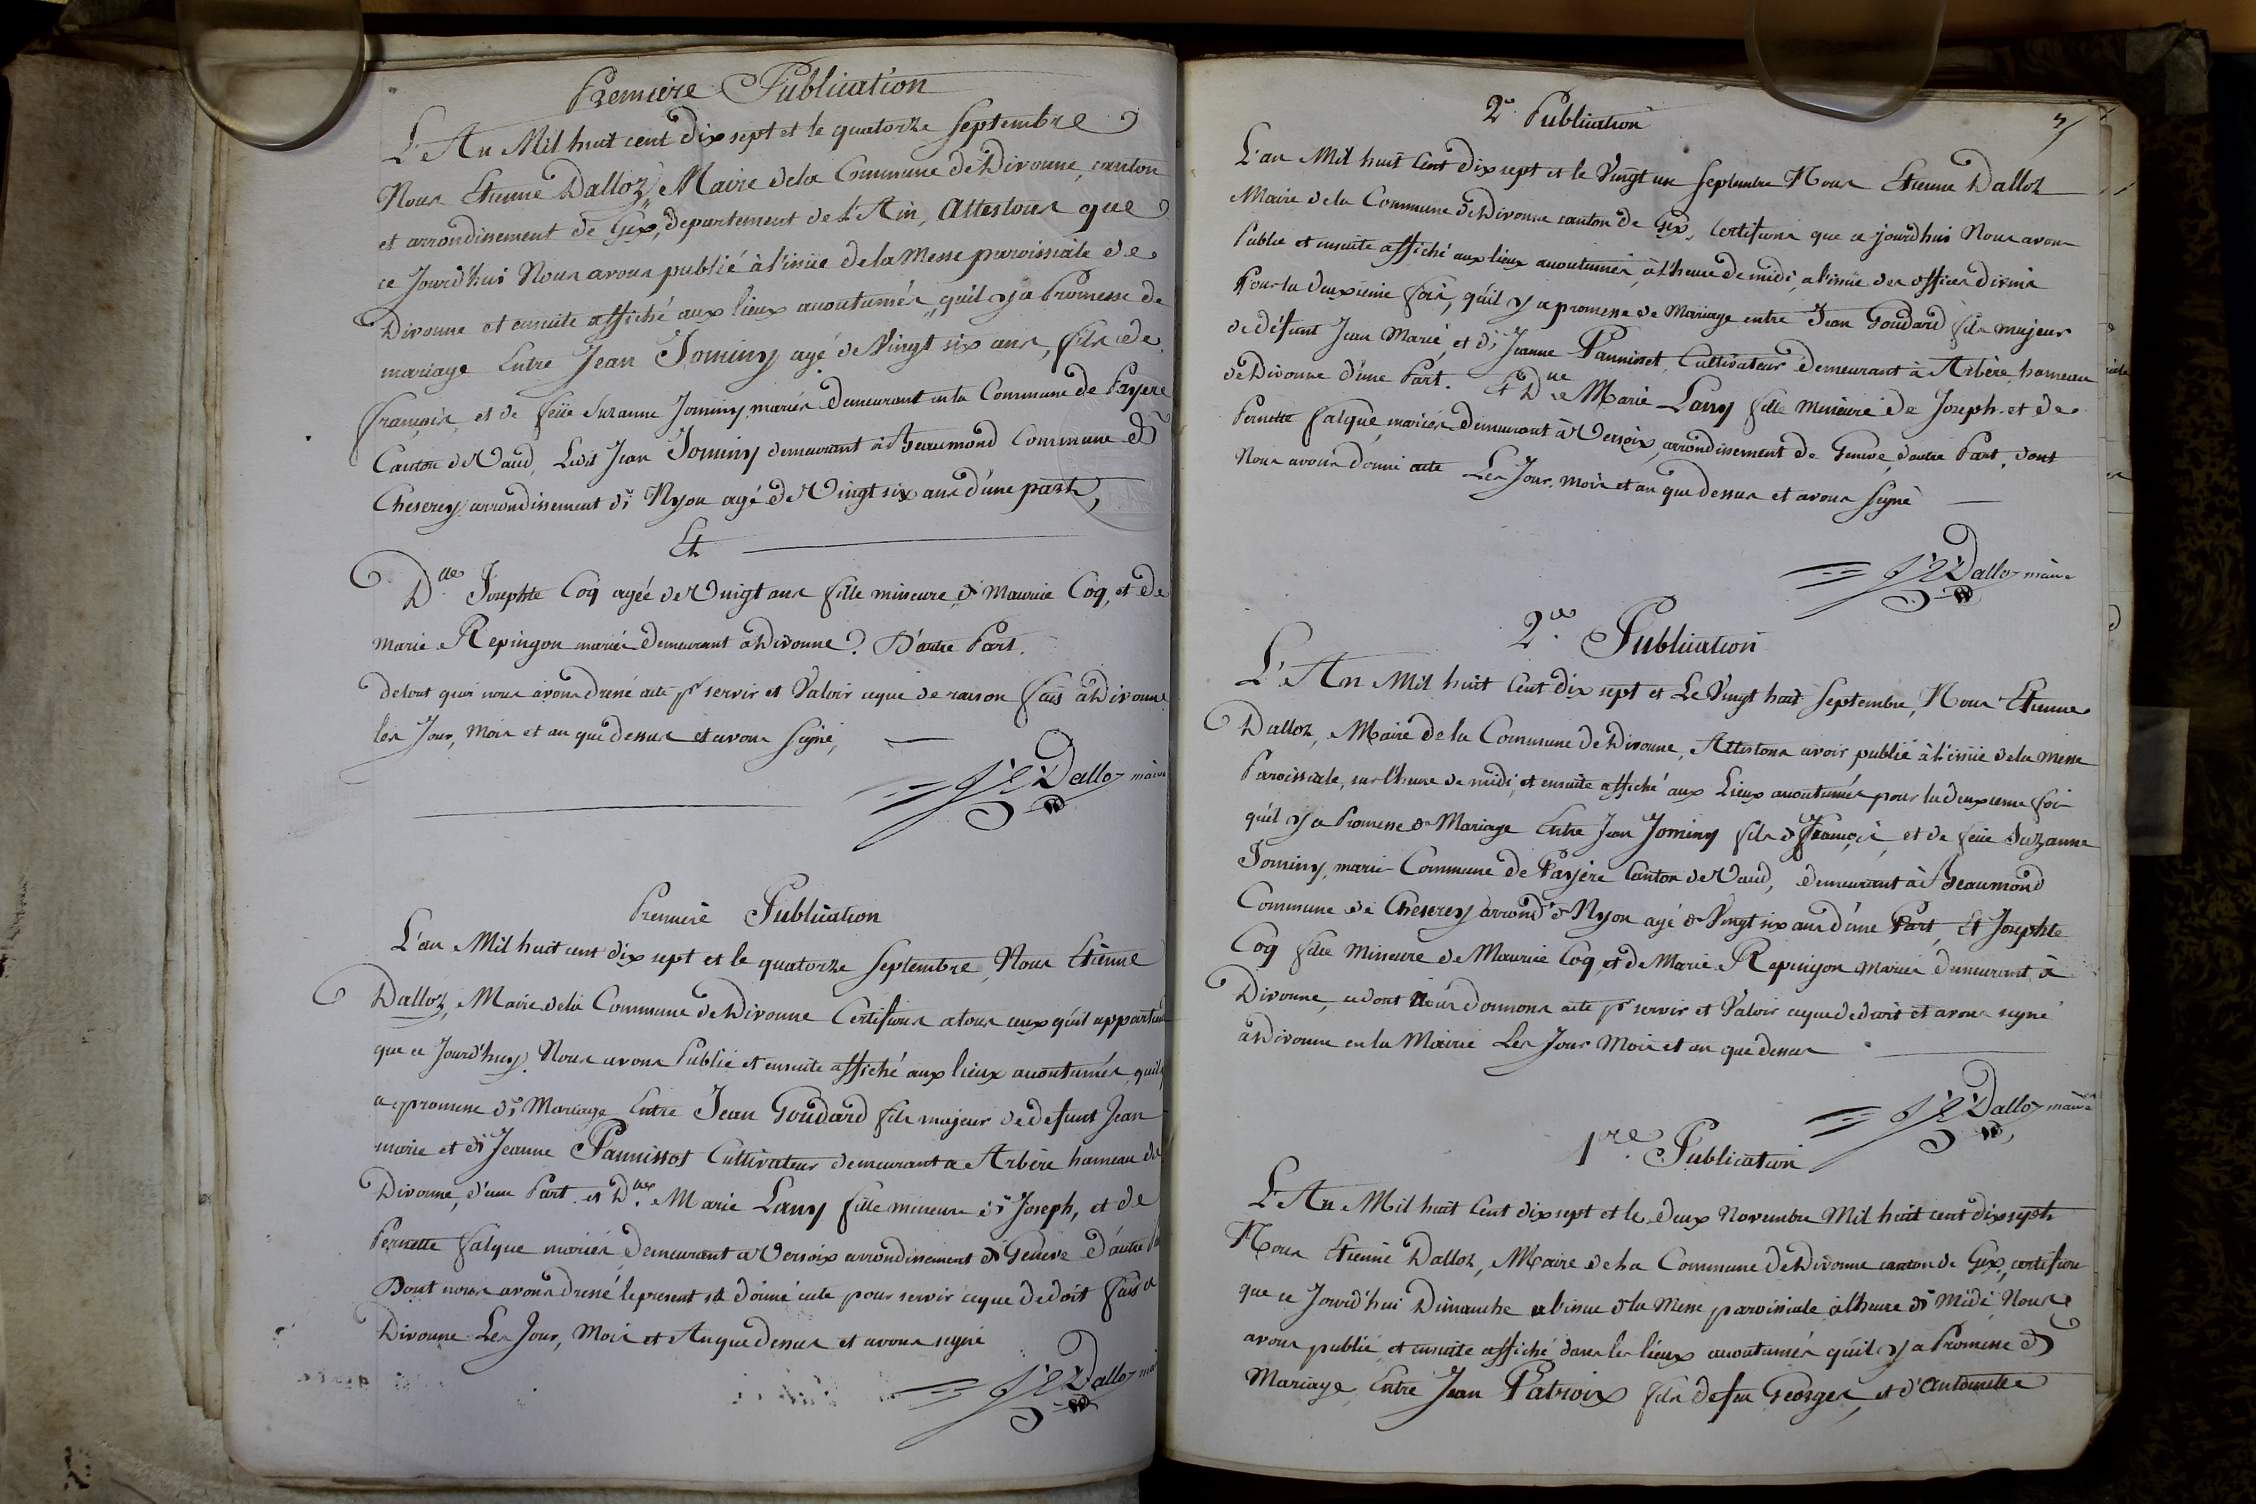 Premiere Publication
L'An Mil huit cent dix sept et le quatorze septembre
Nous Etienne Dalloz, Maire dela Commune de Divonne, canton
et arrondissement de Gex, departement de l'Ain, Attestons que
ce Jourd'hui Nous avons publié à l'issüe de la Messe paroissiale de
Divonne et ensuite affiché aux lieux accoutumés, qu'il y a Promesse de
mariage Entre Jean Jominy agé de Vingt six ans, fils de
françois, et de feüe Suzanne Jominy, mariés demeurant en la Commune de Payere
Canton de Vaud, Ledit Jean Jominy demeurant à Beaumond Commune de
Cheserey arrondissement de Nyon agé de Vingt six ans d'une part,
Et
Dlle Josephte Coq agée de Vingt ans fille mineure de Maurice Coq, et de
Marie Repingon mariés demeurant à Divonne. D'autre Part.
de tout quoi nous avons dressé acte pr servir et Valoir ce que de raison fais à Divonne
les Jour, Mois et an que dessus et avons signé,
Dalloz maire
Premiere Publication
L'an Mil huit cent dix sept et le quatorze Septembre, Nous Etienne
Dalloz, Maire dela Commune de Divonne Certifions a tous ceux qu'il appartient
que ce Jourd'huy Nous avons Publié et ensuite affiché aux lieux accoutumés, qu'il y
a promesse de Mariage Entre Jean Goudard fils majeur de defunt Jean
marie et de Jeanne Pannissot Cultivateur demeurant a Arbère hameau de
Divonne, d'une Part. et Dlle Marie Lany fille mineure de Joseph, et de
Pernette falque mariés, demeurant a Versoix arrondissement de Geneve d'autre
Dont nous avons dressé le present et donné acte pour servir ce que de doit fais a
Divonne Les Jour, Mois et An que dessus et avons signé
Dalloz
2e Publication
L'an Mil huit Cent dix sept et le Vingt un Septembre Nous Etienne Dalloz
Maire dela Commune de Divonne canton de Gex, Certifions que ce jourd'hui Nous avons
Publié et ensuite affiché aux lieux accoutumés, à l'heure de midi, a l'issüe des offices divins
Pour la deuxieme fois, qu'il y a promesse de Mariage entre Jean Goudard fils majeur
de défunt Jean Marie, et de Jeanne Pannissot, Cultivateur demeurant à Arbère, hameau
de Divonne d'une Part. Et Dlle Marie Lany fille mineure de Joseph et de
Pernette falque, mariés demeurant à Versoix, arrondissement de Geneve, d'autre Part, dont
Nous avons donné acte Les Jour, Mois et an que dessus et avons signé
Dalloz maire
2e Publication
L'An Mil huit Cent dix sept et Le Vingt huit Septembre, Nous Etienne
Dalloz, Maire de la Commune de Divonne, Attestons avoir publié à l'issüe de la Messe
Paroissiale, sur l'heure de midi, et ensuite affiché aux Lieux accoutumés pour la deuxieme foi
qu'il y a Promesse de Mariage Entre Jean Jominy fils de françois, et de feüe Suzanne
Jominy, marié Commune de Payère Canton de Vaud, demeurant à Beaumond
Commune de Cheserey arrondt de Nyon agé de Vingt six ans d'une Part, Et Josephte
Coq fille Mineure de Maurice Coq, et de Marie Repingon Mariés demeurant à
Divonne, ce dont Nous donnons acte pr servir et Valoir ce que de droit et avons signé
à Divonne en la Mairie Les Jour Mois et an que dessus
Dalloz maire
1re Publication
L'An Mil huit Cent dix sept et le deux Novembre Mil huit cent dix sept
Nous Etienne Dalloz, Maire de la Commune de Divonne canton de Gex, certifions
que ce Jourd'hui Dimanche a l'issue de la Messe paroissiale à l'heure de Midi Nous
avons publié et ensuite affiché dans les lieux accoutumés qu'il y a Promesse de
Mariage, Entre Jean Patroix fils de feu Georges, et d'Antoinette